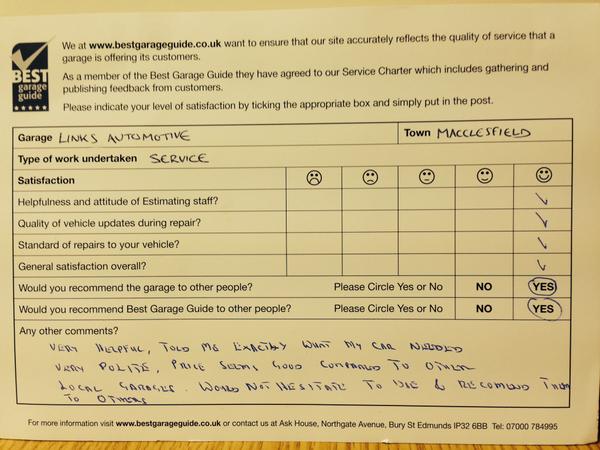 BEST
garage
guide
We at www.bestgarageguide.co.uk want to ensure that our site accurately reflects the quality of service that a
garage is offering its customers.
As a member of the Best Garage Guide they have agreed to our Service Charter which includes gathering and
publishing feedback from customers.
Please indicate your level of satisfaction by ticking the appropriate box and simply put in the post.
Garage LINKS AUTOMOTIVE Town MACCLESFIELD
Type of work undertaken SERVICE
Satisfaction
Helpfulness and attitude of Estimating staff?
Quality of vehicle updates during repair?
Standard of repairs to your vehicle?
General satisfaction overall?
Would you recommend the garage to other people? Please Circle Yes or No NO YES
Would you recommend Best Garage Guide to other people? Please Circle Yes or No NO YES
Any other comments?
VERY HELPFUL, TOLD ME EXACTLY WHAT MY CAR NEEDED
VERY POLITE, PRICE SEEMS GOOD COMPARED TO OTHER
LOCAL GARAGES. WOULD NOT HESITATE TO USE & RECOMEND THEM
TO OTHERS
For more information visit www.bestgarageguide.co.uk or contact us at Ask House, Northgate Avenue, Bury St Edmunds IP32 6BB Tel: 07000 784995